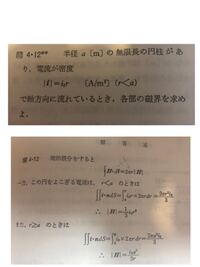 問 4・12** 半径 a [m] の無限長の円柱があ
り、電流が密度
|i| = i₀r [A/m²] (r<a)
で軸方向に流れているとき、各部の磁界を求め
よ。
問 4・12 周回積分をすると
∮H・dl=2πr|H|
一方、この円をよこぎる電流は、r<a のときは
∬i・ndS=∫i₀r×2πrdr=2πr³i₀/3
∴ |H|=
また、r≥a のときは
∬i・ndS=∫i₀r×2πrdr=2πa³i₀/3
∴ |H|=i₀a³/3r